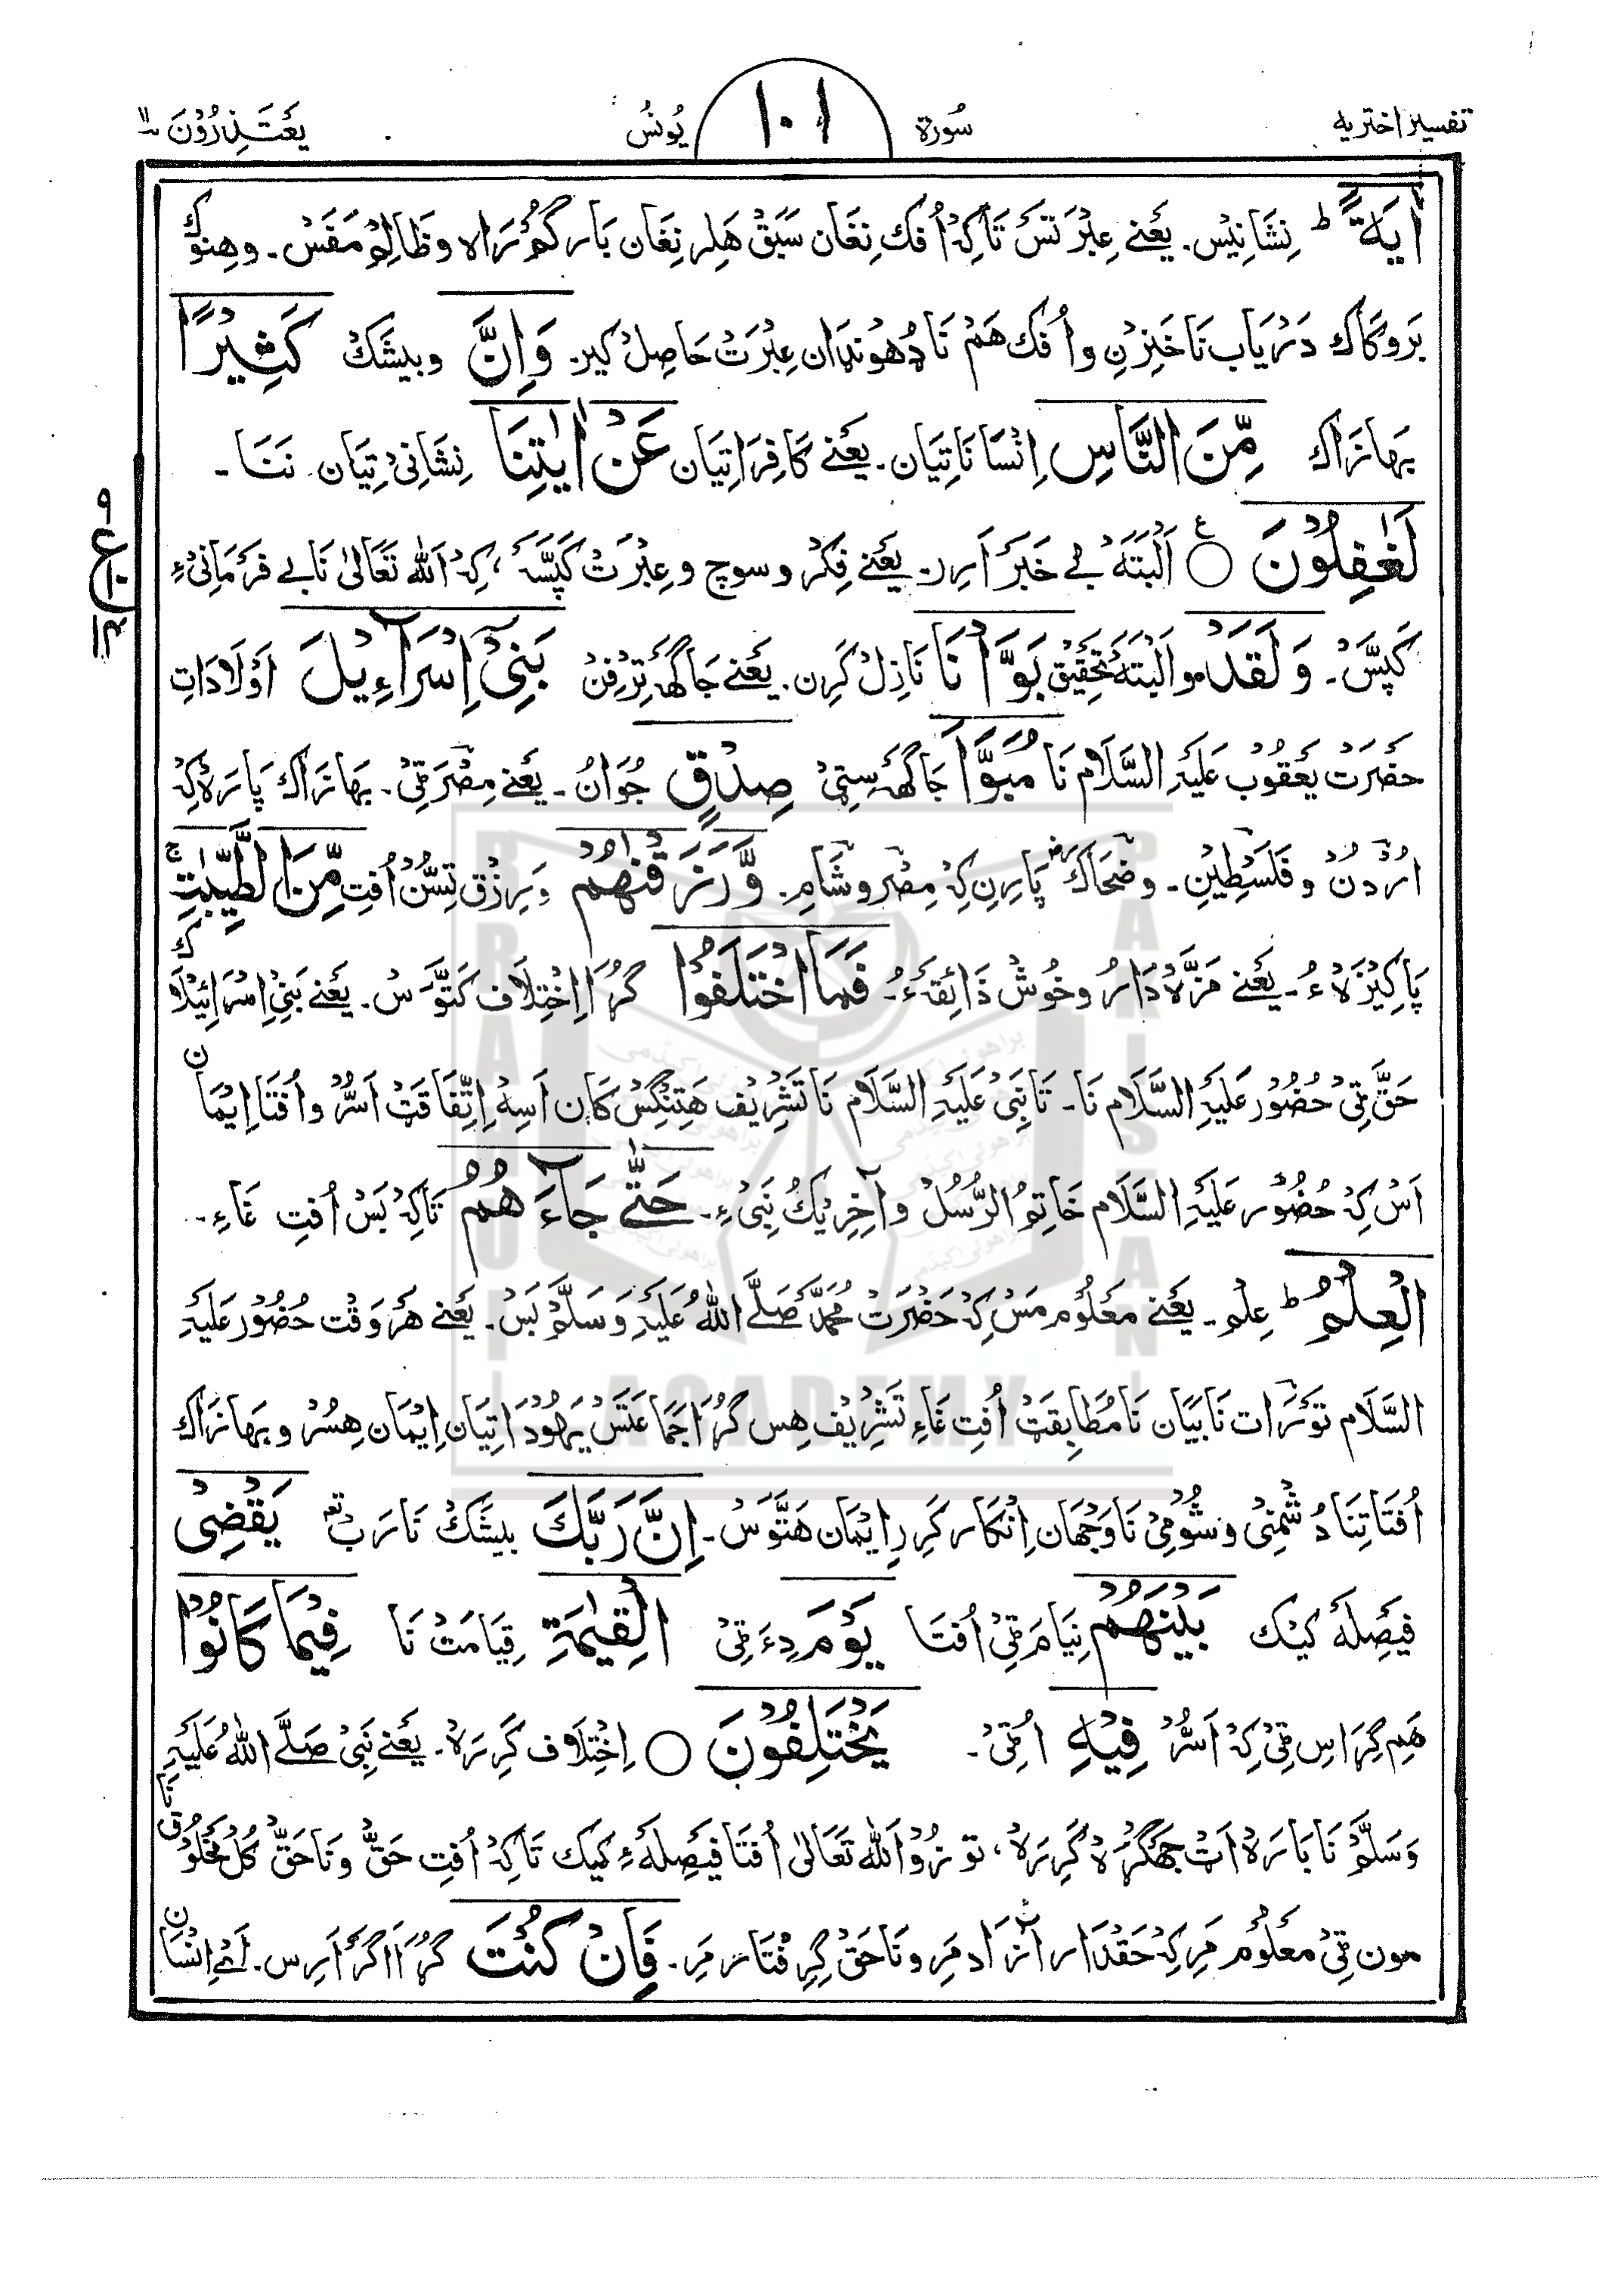 تفسیر اختریه
سُورة
۱۰۱
یُونسُ
یَعۡتَذِرُوۡنَ ۱۱
اٰیَةً ؕ نِشَانِیَس۔ یَعۡنے عِبۡرَتَس تَاکِہۡ اُفک نِغَان سَبَقۡ هَلِر نِغَان بَار گُمۡرَاہ وظَالِمۡ مَفَسۡ۔ وهِنوک
بَروکَاک دَریَاب نَا خَیزِن و اُفک هَمۡ نَا دُهوندَان عِبۡرَتۡ حَاصِلۡ کیر۔ وَاِنَّ وبیشَکۡ کَثِیۡرًا
بَهازَاک مِّنَ النَّاسِ اِنۡسَانَاتِیَان۔ یَعۡنے کَافِرَاتِیَان عَنۡ اٰیٰتِنَا نِشَانِیۡ تِیَان نَنَا۔
لَغٰفِلُوۡنَ ○ اَلۡبَتَّہ بے خَبَر اَرِر۔ یَعۡنے فِکۡر و سوچ و عِبۡرَتۡ کَپَسَّہ، کِہۡ اَللّٰه تَعَالیٰ نَا بے فَرۡمَانِیۡءِ
کَپَسَّ۔ وَلَقَدۡ و اَلۡبَتَّہ تَحۡقِیۡق بَوَّاۡنَا نَازِلۡ کَرِن۔ یَعۡنے جَاگَہ تِرِفِنۡ بَنِیۡۤ اِسۡرَآءِیۡلَ اَوۡلَادَاتِ
حَضۡرَتۡ یَعۡقُوبۡ عَلَیۡہِ السَّلَام نَا مُبَوَّاَ جَاگَہ سِتِیۡ صِدۡقٍ جُوَانُ۔ یَعۡنے مِصۡر تِیۡ۔ بَهازَاک پَارَہ کِہۡ
اُرۡدُنۡ و فَلَسۡطِیۡنِ۔ و ضَحَّاکؒ پَارِن کِہۡ مِصۡر و شَامِ۔ وَّرَزَقۡنٰهُمۡ وَ رِزۡق تِسُّنۡ اُفتِ مِّنَ الطَّیِّبٰتِ ۚ
پَاکِیۡزَہ ءُ۔ یَعۡنے مَزَّہ دَارُ و خُوشۡ ذَائِقَہ ءُ۔ فَمَا اخۡتَلَفُوۡا گُرَا اِخۡتِلَاف کَتَّوَسۡ۔ یَعۡنے بَنِیۡ اِسۡرَائِیۡلَاک
حَقّ تِیۡ حُضُوۡر عَلَیۡہِ السَّلَام نَا۔ تَا نَبِیۡ عَلَیۡہِ السَّلَام نَا تَشۡرِیۡف هَتِنۡگِسۡکَان اَسِہۡ اِتِّفَاقَتۡ اَسُّرۡ و اُفتَا اِیۡمَان
اَسۡ کِہۡ حُضُوۡر عَلَیۡہِ السَّلَام خَاتِمُ الرُّسُلۡ و آخِرِیۡکُ نَبِیۡ ءِ۔ حَتّٰی جَآءَهُمُ تَاکِہۡ بَسۡ اُفتِ غَاءِ۔
الۡعِلۡمُ ؕ عِلۡم۔ یَعۡنے مَعۡلُوۡم مَسۡ کِہۡ حَضۡرَتۡ مُحَمَّد صَلَّے اللّٰهُ عَلَیۡہِ وَسَلَّمۡ بَسۡ۔ یَعۡنے هَر وَقۡت حُضُوۡر عَلَیۡہِ
السَّلَام تَوۡرَات نَا بَیَان نَا مُطَابِقَتۡ اُفتِ غَاءِ تَشۡرِیۡف هِس گُرَا جَمَاعَتَسۡ یَهُوۡدَاتِیَان اِیۡمَان هِسُرۡ و بَهازَاک
اُفتَا تِنَا دُشۡمَنِیۡ و شُوۡمِیۡ نَا وَجۡهَان اِنۡکَار کَرِر اِیۡمَان هَتَّوَسۡ۔ اِنَّ رَبَّکَ بیشَکۡ نَا رَبۡ یَقۡضِیۡ
فَیۡصِلَہ کیک بَیۡنَهُمۡ نِیَام تِیۡ اُفتَا یَوۡمَ دِءَ تِیۡ الۡقِیٰمَةِ قِیَامَتۡ نَا فِیۡمَا کَانُوۡا
هَم گِرَاس تِیۡ کِہۡ اَسُّرۡ فِیۡہِ اُ تِیۡ۔ یَخۡتَلِفُوۡنَ ○ اِخۡتِلَاف کَرِرَہ۔ یَعۡنے نَبِیۡ صَلَّے اللّٰهُ عَلَیۡہِ
وَسَلَّمۡ نَا بَارَہ اَتۡ جَهگۡڑَہ کَرِرَہ، تو زُوۡ اَللّٰه تَعَالیٰ اُفتَا فَیۡصِلَہ ءِ کیک تَاکِہۡ اُفتِ حَقّ و نَاحَقّ کُلۡ مَخۡلُوۡق نَا
مون تِیۡ مَعۡلُوۡم مَر کِہۡ حَقۡدَار آزَاد مَر و نَاحَقۡ گِرِفۡتَار مَر۔ فَاِنۡ کُنۡتَ گُرَا اَگَر اَرِس۔ اَے اِنۡسَان